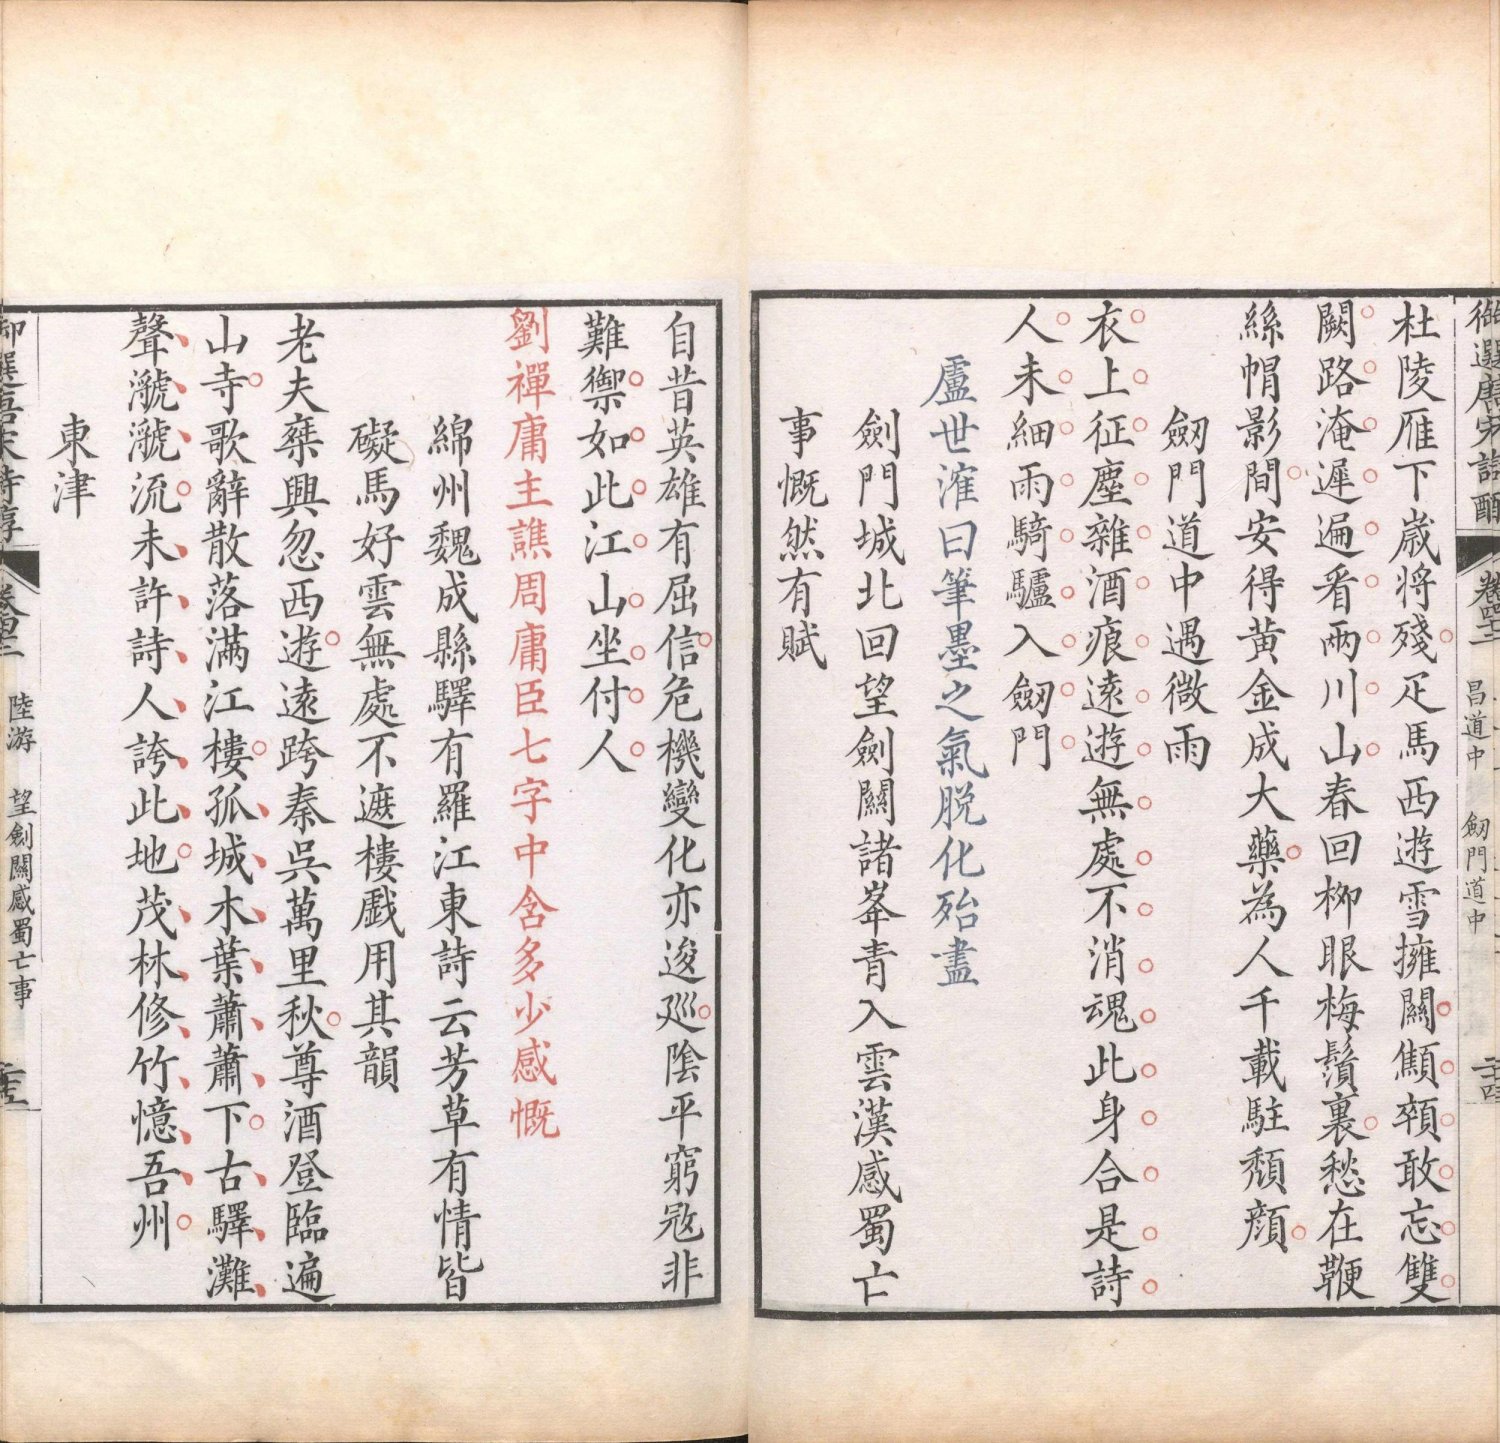 御選唐宋詩醇
卷四十二
昌道中 劒門道中
二十四
杜陵雁下歲將殘疋馬西遊雪擁關顦顇敢忘雙
闕路淹遲遍看兩川山春回柳眼梅鬚裏愁在鞭
絲帽影間安得黃金成大藥為人千載駐頹顏
劒門道中遇微雨
衣上征塵雜酒痕遠遊無處不消魂此身合是詩
人未細雨騎驢入劒門
盧世㴶曰筆墨之氣脫化殆盡
劍門城北回望劍關諸峯青入雲漢感蜀亡
事慨然有賦
自昔英雄有屈信危機變化亦逡巡陰平窮寇非
難禦如此江山坐付人
劉禪庸主譙周庸臣七字中含多少感慨
綿州魏成縣驛有羅江東詩云芳草有情皆
礙馬好雲無處不遮樓戲用其韻
老夫乗興忽西遊遠跨秦吳萬里秋尊酒登臨遍
山寺歌辭散落滿江樓孤城木葉蕭蕭下古驛灘
聲㶁㶁流未許詩人誇此地茂林修竹憶吾州
東津
御選唐宋詩醇
卷四十二
陸游 望劍關感蜀亡事
二十五